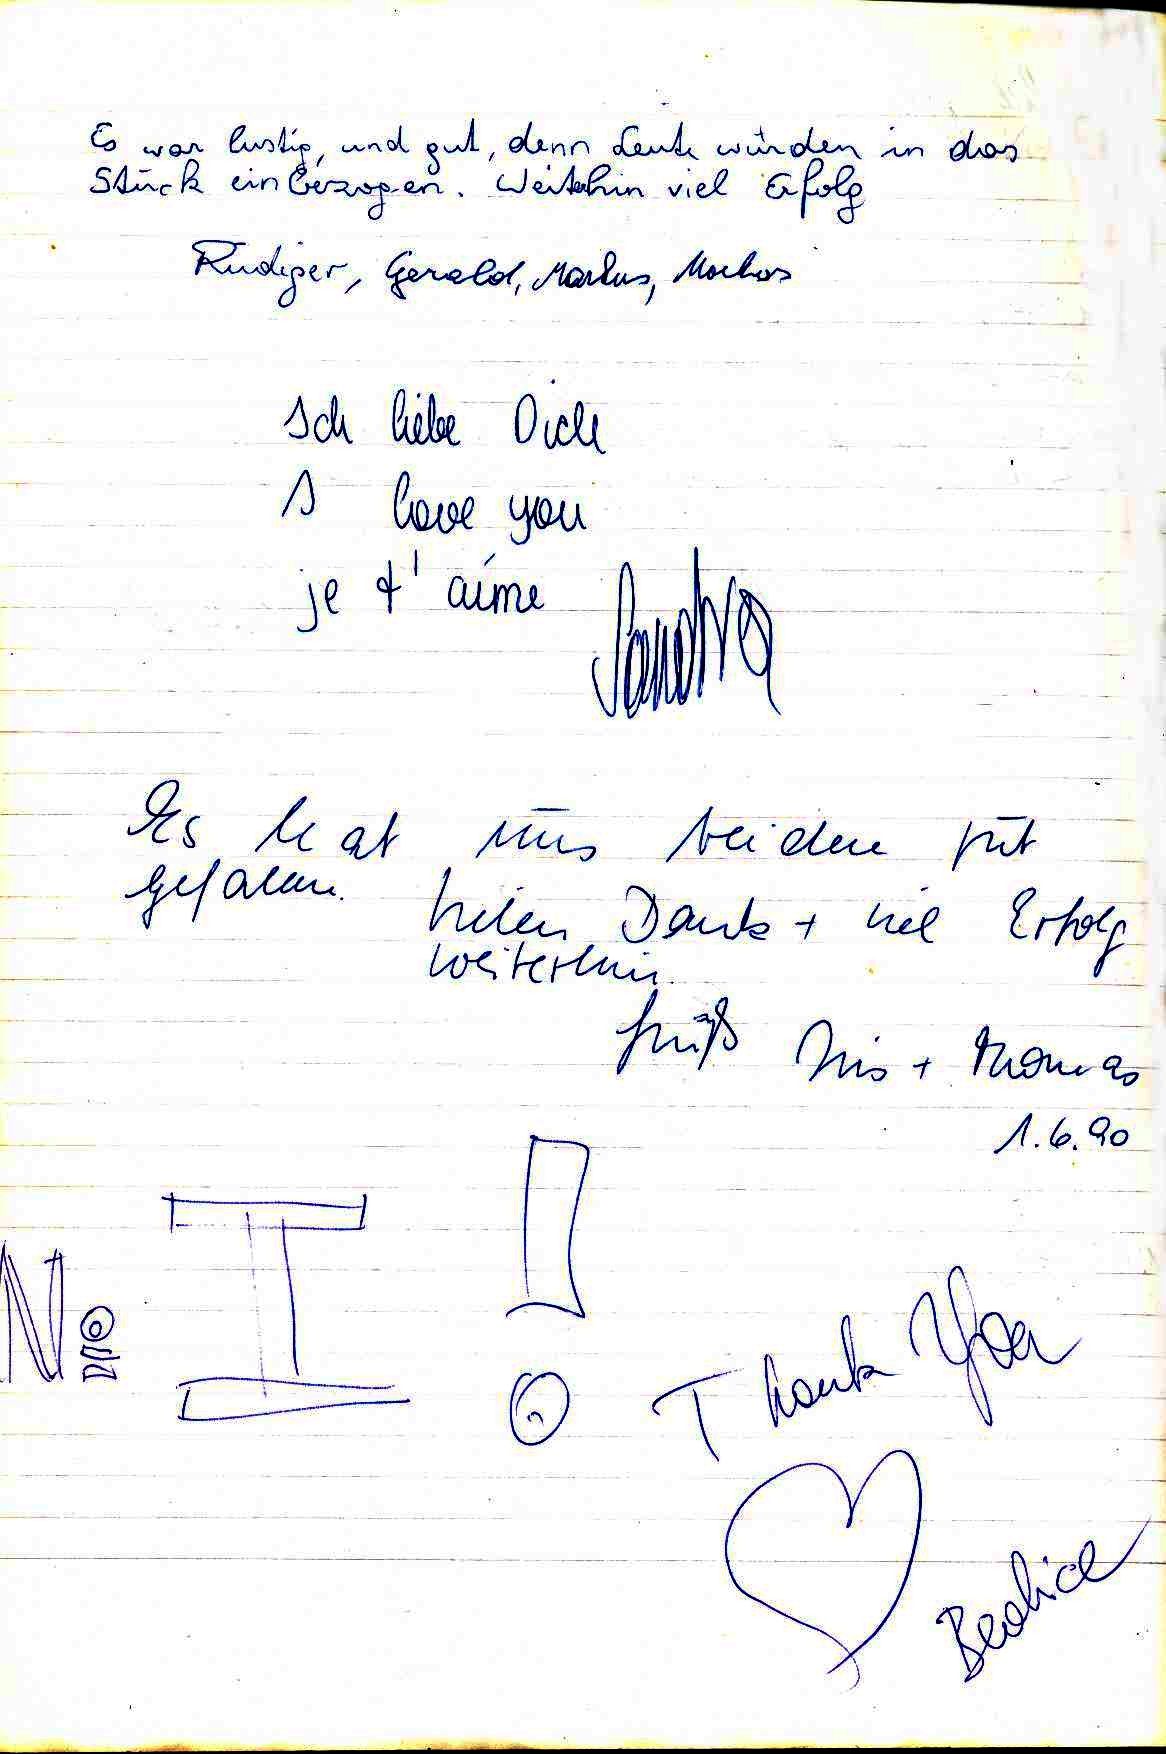 Es war lustig, und gut, denn Leute würden in das
Stück einbezogen. Weiterhin viel Erfolg
Rüdiger, Gerald, Markus, Markus
Ich liebe Dich
I love you
je t'aime
Sandra
Es hat uns beiden gut
gefallen.
Vielen Dank + viel Erfolg
weiterhin.
Gruß Iris + Thomas
1.6.90
No I !
Thank You
Beatrice